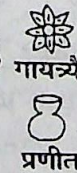 गायत्र्यै
प्रणीत